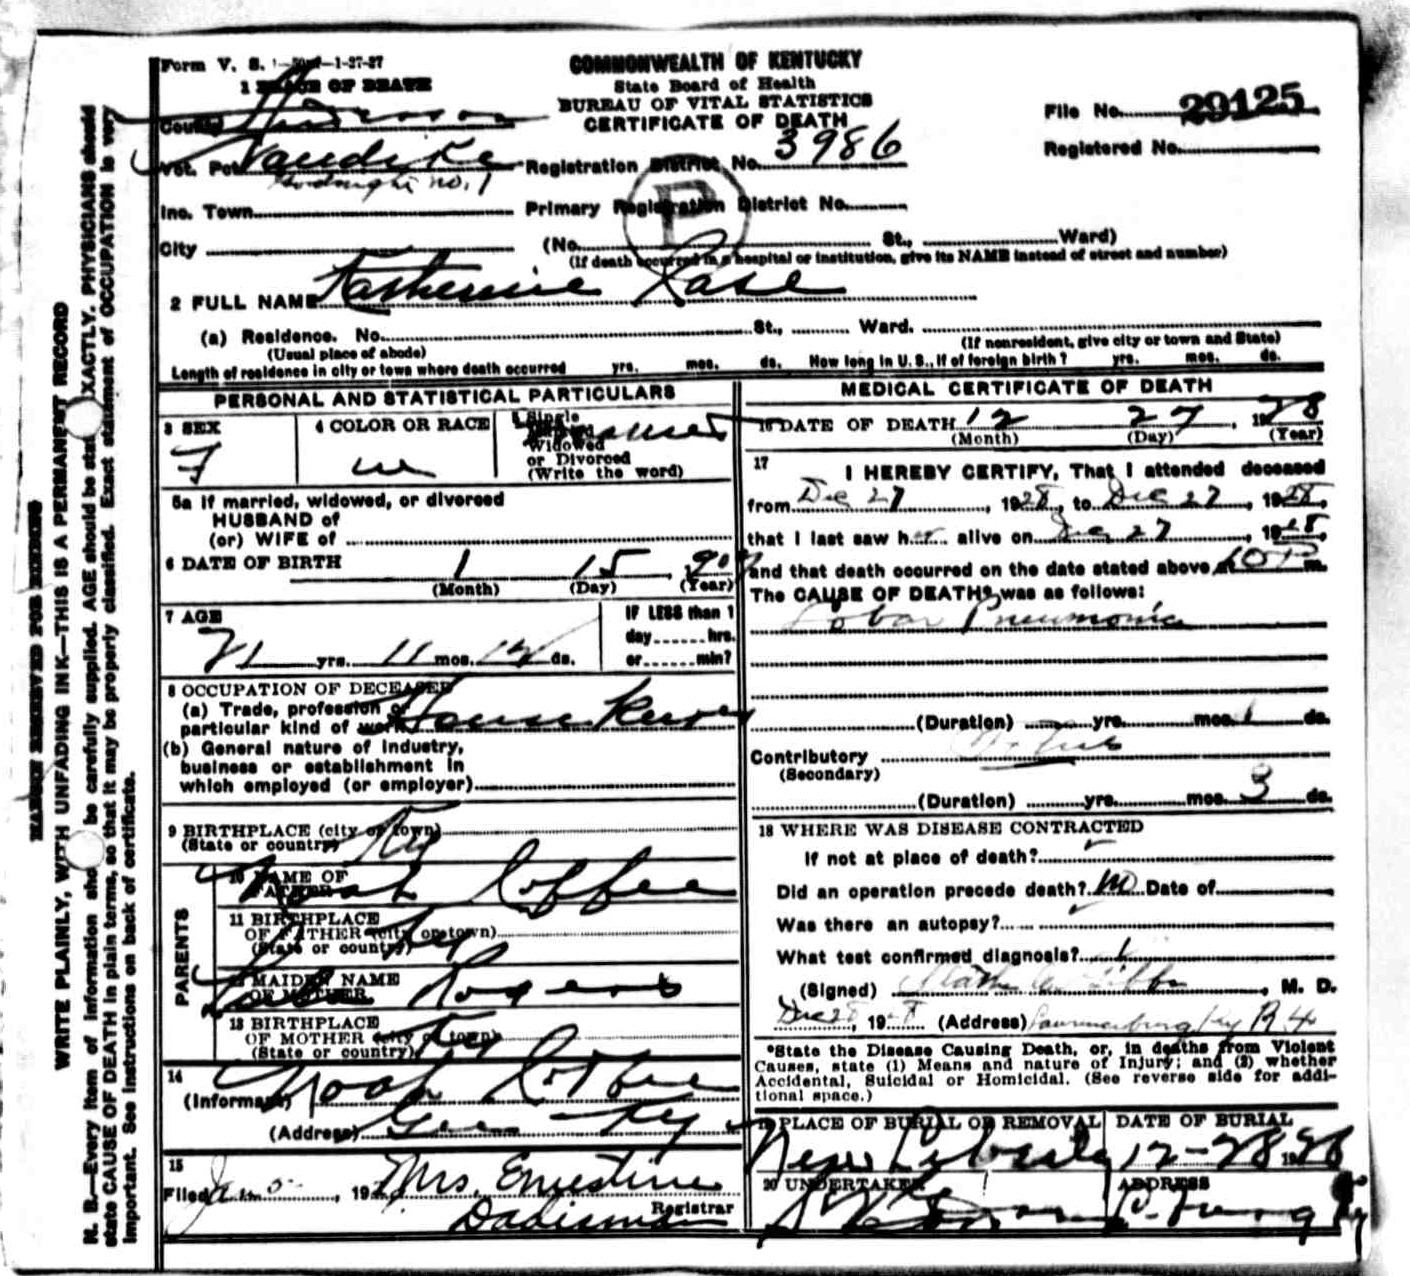 Form V. S. 1-50m-1-27-27
COMMONWEALTH OF KENTUCKY
State Board of Health
BUREAU OF VITAL STATISTICS
CERTIFICATE OF DEATH
File No. 29125
Registered No.
1 PLACE OF DEATH
County Anderson
Vot. Pct Vandike
no. 1
Registration District No. 3986
Inc. Town
Primary Registration District No.
City (No. St., Ward)
(If death occurred in a hospital or institution, give its NAME instead of street and number)
2 FULL NAME Katherine Case
(a) Residence. No. St., Ward.
(Usual place of abode) (If nonresident, give city or town and State)
Length of residence in city or town where death occurred yrs. mos. ds. How long in U. S., if of foreign birth? yrs. mos. ds.
PERSONAL AND STATISTICAL PARTICULARS
3 SEX F
4 COLOR OR RACE W
5 Single
Married
Widowed
or Divorced
(Write the word)
5a If married, widowed, or divorced
HUSBAND of
(or) WIFE of
6 DATE OF BIRTH 1 15, 907
(Month) (Day) (Year)
7 AGE
21 yrs. 11 mos. 12 ds.
IF LESS than 1
day......hrs.
or......min?
8 OCCUPATION OF DECEASED
(a) Trade, profession or
particular kind of work House Keeper
(b) General nature of industry,
business or establishment in
which employed (or employer)
9 BIRTHPLACE (city or town)
(State or country) Ky
PARENTS
10 NAME OF
FATHER Noah Coffee
11 BIRTHPLACE
OF FATHER (city or town)
(State or country) Ky
12 MAIDEN NAME
OF MOTHER Rogers
13 BIRTHPLACE
OF MOTHER (city or town)
(State or country) Ky
14
(Informant) Noah Coffee
(Address) Gee Ky
15
Filed Jan 5, 19 Mrs. Ernestine
Dadisman Registrar
MEDICAL CERTIFICATE OF DEATH
16 DATE OF DEATH 12 27, 1928
(Month) (Day) (Year)
17
I HEREBY CERTIFY, That I attended deceased
from Dec 27, 1928, to Dec 27, 1928,
that I last saw her alive on Dec 27, 1928,
and that death occurred on the date stated above at 10 P m.
The CAUSE OF DEATH* was as follows:
Lobar Pneumonia
(Duration) yrs. mos. 1 ds.
Contributory
(Secondary)
(Duration) yrs. mos. 3 ds.
18 WHERE WAS DISEASE CONTRACTED
If not at place of death?
Did an operation precede death? no Date of
Was there an autopsy?
What test confirmed diagnosis?
(Signed) Gibbs, M. D.
Dec 28, 1928 (Address) Lawrenceburg Ky R. 4
*State the Disease Causing Death, or, in deaths from Violent
Causes, state (1) Means and nature of Injury; and (2) whether
Accidental, Suicidal or Homicidal. (See reverse side for addi-
tional space.)
19 PLACE OF BURIAL OR REMOVAL New Liberty
DATE OF BURIAL 12-28 1928
20 UNDERTAKER
ADDRESS L.burg Ky
MARGIN RESERVED FOR BINDING
WRITE PLAINLY, WITH UNFADING INK—THIS IS A PERMANENT RECORD
N. B.—Every item of information should be carefully supplied. AGE should be stated EXACTLY. PHYSICIANS should
state CAUSE OF DEATH in plain terms, so that it may be properly classified. Exact statement of OCCUPATION is very
important. See instructions on back of certificate.